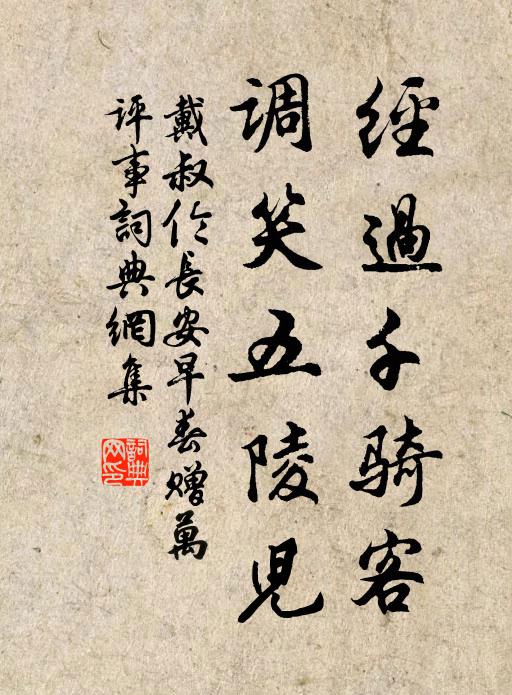 經過千騎客
調笑五陵兒
戴叔伦長安早春赠萬
評事詞典網集
詞典網印